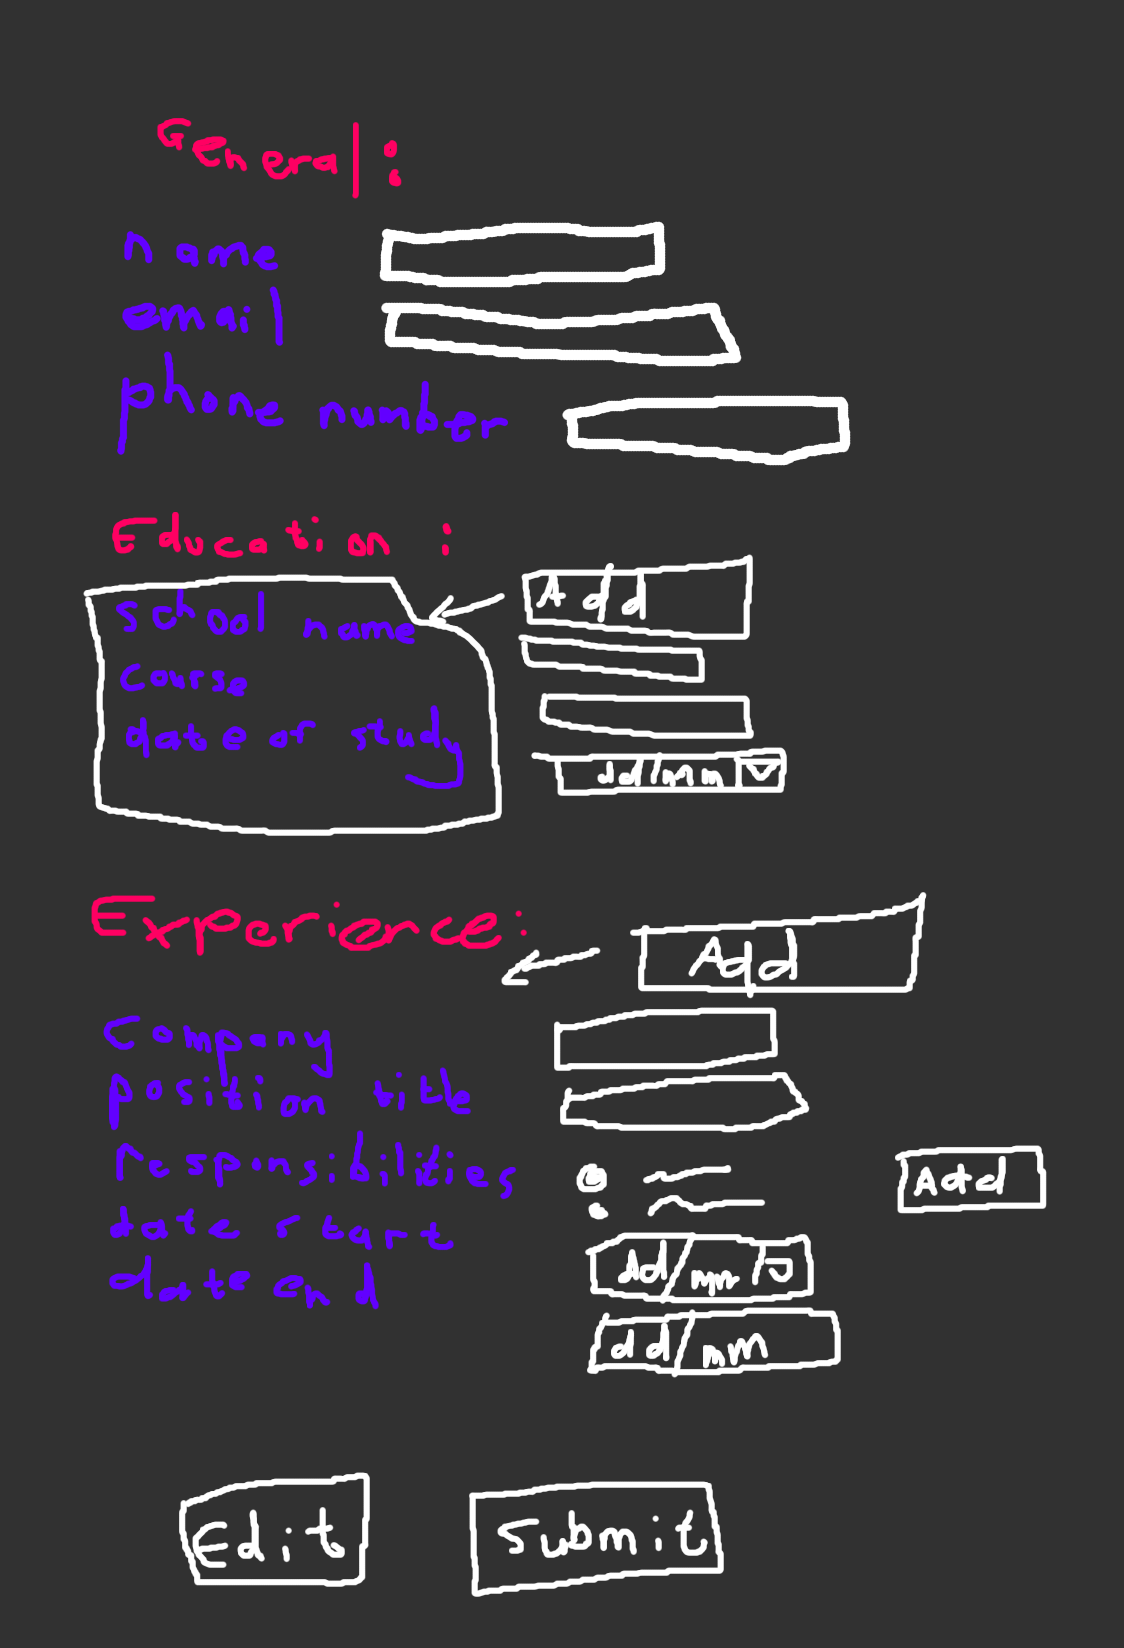 General:
name
email
phone number
Education :
Add
school name
course
date of study
dd/mm
Experience:
Add
Company
position title
responsibilities
Add
date start
dd/mm
date end
dd/mm
Edit
Submit